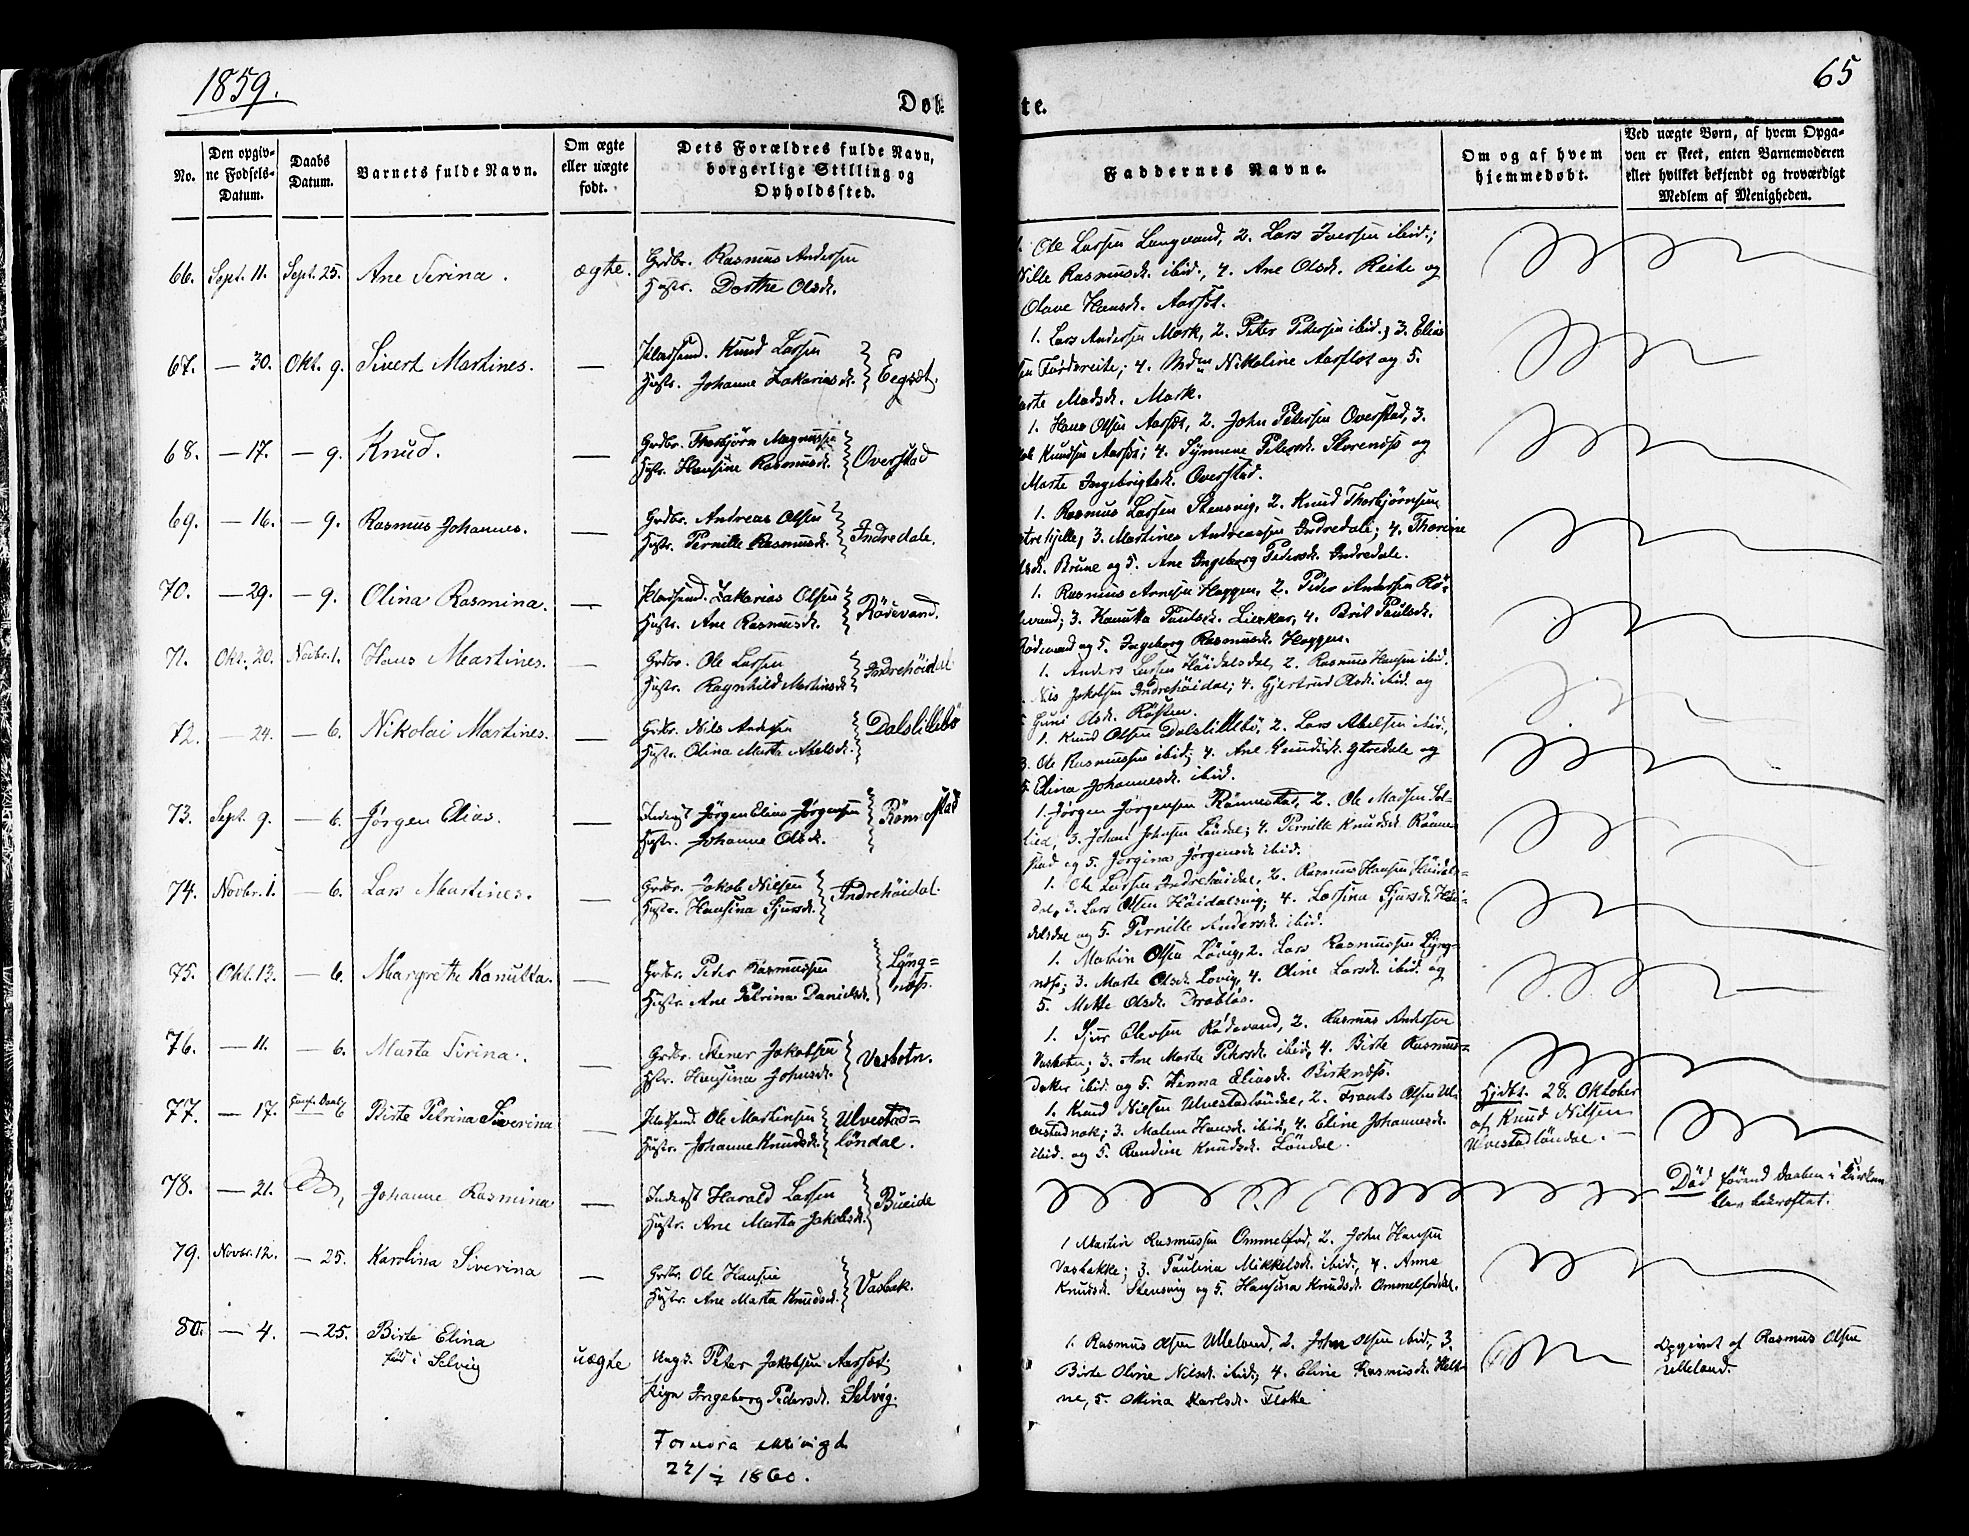 1859.
65
Døb-
te.
No.
Den opgiv-
ne Fødsels-
Datum.
Daabs
Datum.
Barnets fulde Navn.
Om ægte
eller uægte
født.
Dets Forældres fulde Navn,
borgerlige Stilling og
Opholdssted.
Faddernes Navne.
Om og af hvem
hjemmedøbt.
Ved uægte Børn, af hvem Opga-
ven er skeet, enten Barnemoderen
eller hvilket bekjendt og troværdigt
Medlem af Menigheden.
66. Sept. 11. Sept. 25. Ane Serina. ægte.
Grdbr. Rasmus Andersen
Hustr. Dorthe Olsdr.
Ole Larsen Langvand, 2. Lars Iversen ibid.;
Nille Rasmusdr. ibid., 4. Ane Olsdr. Reite og
Olave Hansdr. Aarsæt.
67. — 30. Okt. 9. Sivert Martines. —
Pladsmd. Knud Larsen
Hustr. Johanne Zakariasdr. Eegsæt.
1. Lars Andersen Mork, 2. Peter Petersen ibid.; 3. Elias
4. Nikoline Aarflot og 5.
Marte Madsdr. Mork.
68. — 17. — 9. Knud. —
Grdbr. Thorbjørn Magnussen
Hustr. Hansine Rasmusdr. Overstad
1. Hans Olsen Aarsæt, 2. John Petersen Overstad, 3.
Knudsen Aarsæt; 4. Synnøve Petersdr. Storenæs og
Marte Ingebrigtsdr. Overstad.
69. — 16. — 9. Rasmus Johannes. —
Grdbr. Andreas Olsen
Hustr. Pernille Rasmusdr. Indredale.
1. Rasmus Larsen Stensvig, 2. Knud Thorbjørnsen
3. Martines Andreassen Indredale; 4. Thorine
Brune og 5. Ane Ingeborg Pedersdr. Indredale.
70. — 29. — 9. Olina Rasmina. —
Pladsmd. Zakarias Olsen
Hustr. Ane Rasmusdr. Rödevand.
1. Rasmus Arnesen Hoggen, 2. Peder Andersen Rö-
devand; 3. Kanutta Paulsdr. Lierkar, 4. Brit Paulsdr.
Rödevand og 5. Ingeborg Rasmusdr. Hoggen.
71. Okt. 20. Novbr. 1. Hans Martines. —
Grdbr. Ole Larsen
Hustr. Ragnhild Martinsdr. Indrehöidal
1. Anders Larsen Höidalsdal, 2. Rasmus Hansen ibid.
Nils Jakobsen Indrehöidal; 4. Gjertrud Olsdr. ibid. og
Guri Olsdr. Rösten.
72. — 24. — 6. Nikolai Martines. —
Grdbr. Nils Andersen
Hustr. Olina Marta Abelsdr. Dalslillebö
1. Knud Olsen Dalslillebö, 2. Lars Abelsen ibid.,
3. Ole Rasmussen ibid; 4. Ane Knudsdr. Ytredale og
5. Elina Johannesdr. ibid.
73. Sept. 9. — 6. Jørgen Elias. —
Inderst Jørgen Elias Jørgensen
Hustr. Johanne Olsdr. Rönnestad
1. Jørgen Jørgensen Rönnestad, 2. Ole Madsen Sol-
lied, 3. Johan Johnsen Löndal; 4. Pernille Knudsdr. Rönne-
stad og 5. Jørgina Jørgensdr. ibid.
74. Novbr. 1. — 6. Lars Martines. —
Grdbr. Jakob Nielsen
Hustr. Hansina Sjursdr. Indrehöidal.
1. Ole Larsen Indrehöidal, 2. Rasmus Hansen Höidals-
dal, 3. Lars Olsen Höidalsvig; 4. Larsina Sjursdr. Höi-
dalsdal og 5. Pernille Andersdr. ibid.
75. Okt. 13. — 6. Margrethe Kanutta. —
Grdbr. Peder Rasmussen
Hustr. Ane Petrina Danielsdr. Lyng-
næs.
1. Martin Olsen Lövig, 2. Lars Rasmussen Lyng-
næs; 3. Marte Olsdr. Lövig, 4. Oline Larsdr. ibid. og
5. Mette Olsdr. Drabløs.
76. — 11. — 6. Marta Serina. —
Grdbr. Stener Jakobsen
Hustr. Hansina Johnsdr. Vasbotn.
1. Sjur Elevsen Rödevand, 2. Rasmus Andersen
Vasbotn; 3. Ane Marte Petersdr. ibid, 4. Birte Rasmus-
datter ibid og 5. Henna Eliasdr. Birknæs.
77. — 17. 6 Birte Petrina Siverina —
Pladsmd. Ole Martinsen
Hustr. Johanne Knudsdr. Ulvestad-
löndal.
1. Knud Nielsen Ulvestadløndal, 2. Frants Olsen Ul-
vestadnak; 3. Malene Hansdr. ibid, 4. Eline Johannesdr.
ibid. og 5. Rundine Knudsdr. Löndal.
Hjdbt. 28. Oktober
af Knud Nilsen
Ulvestadlöndal. —
78. — 21. Johanne Rasmina —
Inderst Harald Larsen
Hustr. Ane Marta Jakobsdr. Bueide
Död förend Daaben i Kirken
79. Novbr. 12. — 25. Karolina Siverina —
Grdbr. Ole Hansen
Hustr. Ane Marta Knudsdr. Vasbak.
1 Martin Rasmussen Ommelfod, 2. John Hansen
Vasbakke; 3. Paulina Mikkelsdr. ibid., 4. Anne
Knudsdr. Stensvig og 5. Hansina Knudsdr. Ommelfoddal.
80. — 4. — 25. Birte Elina
fød i Selvig
uægte
Ungk. Peter Jakobsen Aarsæt;
Pigen Ingeborg Pedersdr. Selvig.
1. Rasmus Olsen Ulleland, 2. John Olsen ibid, 3.
Birte Oline Nilsdr. ibid; 4. Eline Rasmusdr. Helt-
ne, 5. Olina Karlsdr. Flotte
Opgivet af Rasmus Olsen
Ulleland.
22/7 1860.